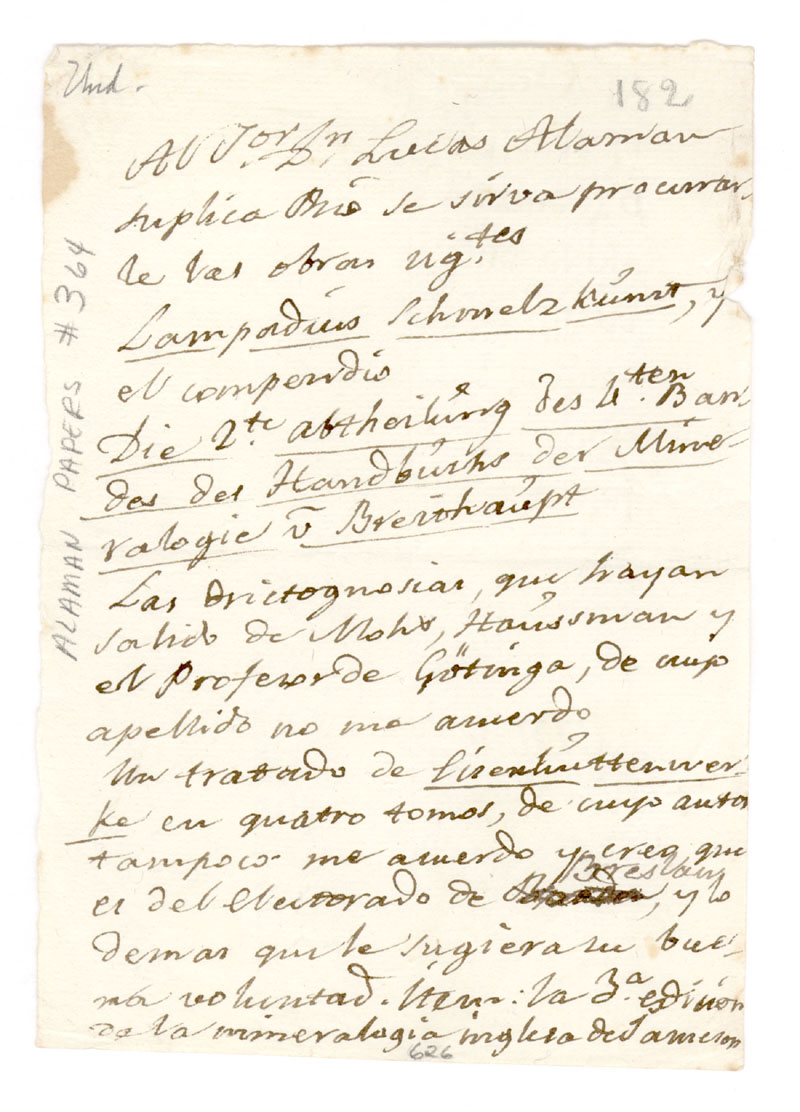 Und.
182
Al Sor. Dn. Lucas Alaman
suplica Rio se sirva procurar-
le las obras sigtes.
Lampadius Schmelzkunst, y
el compendio
Die 2te. abtheilung des 4ten. Ban-
des des Handbuchs der Mine-
ralogie v Breithaupt
Las Orictognosias, que hayan
salido de Mohs, Haussman y
el Profesor de Götinga, de cuyo
apellido no me acuerdo
Un tratado de Eisenhuttenwer-
ke en quatro tomos, de cuyo autor
tampoco me acuerdo y creo que
es del electorado de Breslau, y lo
demas que le sugiera su bue-
na voluntad. Item: la 3a. edicion
de la mineralogia inglesa de Jameson
626
ALAMAN PAPERS #364